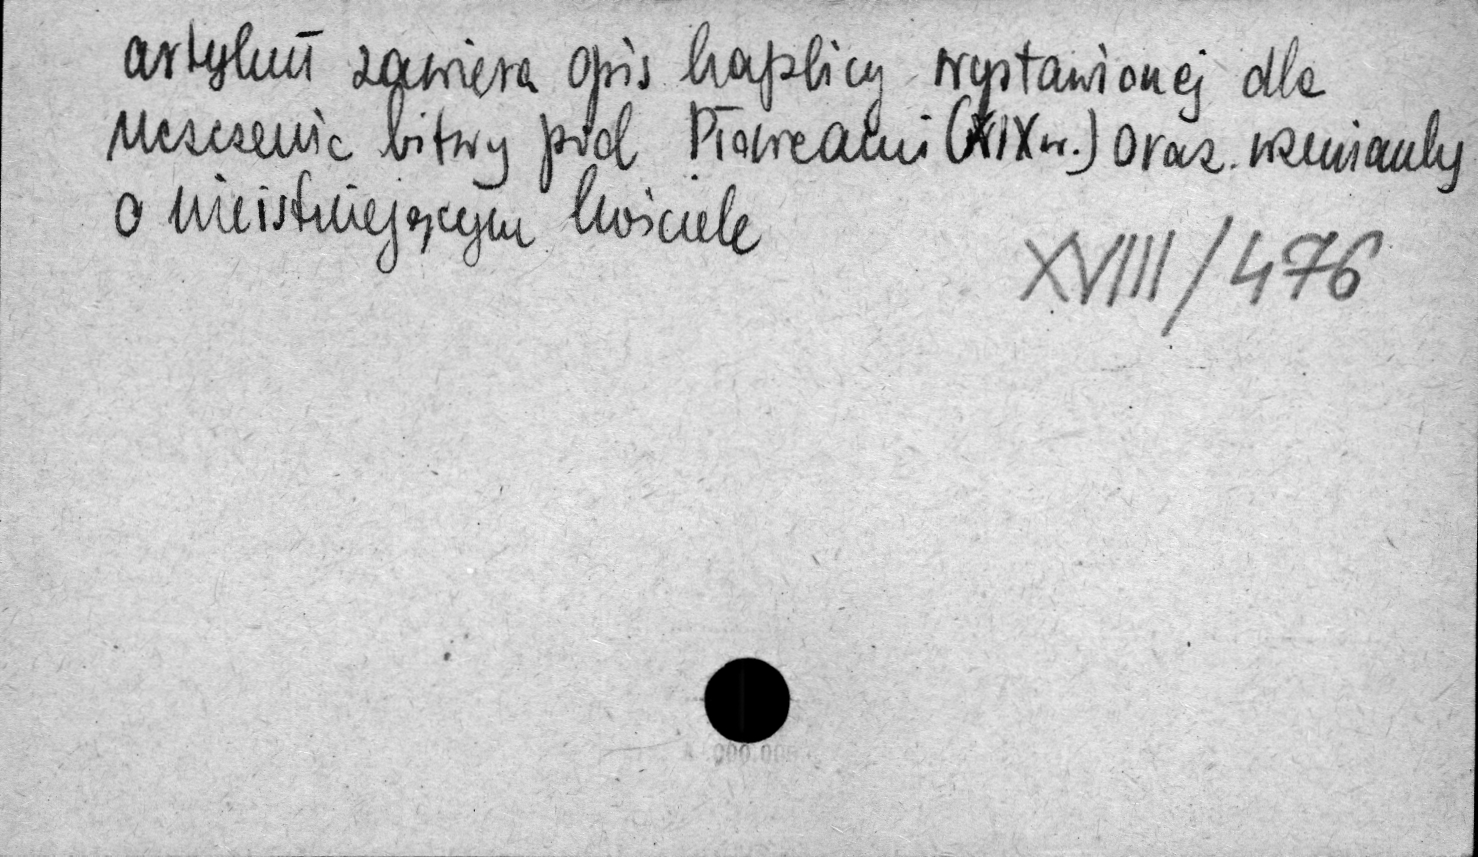 artykuł zawiera opis kaplicy wystawionej dla
uczczenia bitwy pod Płowcami (XIX w.) oraz wzmianky
o nieistniejącym kościele
XVIII/476